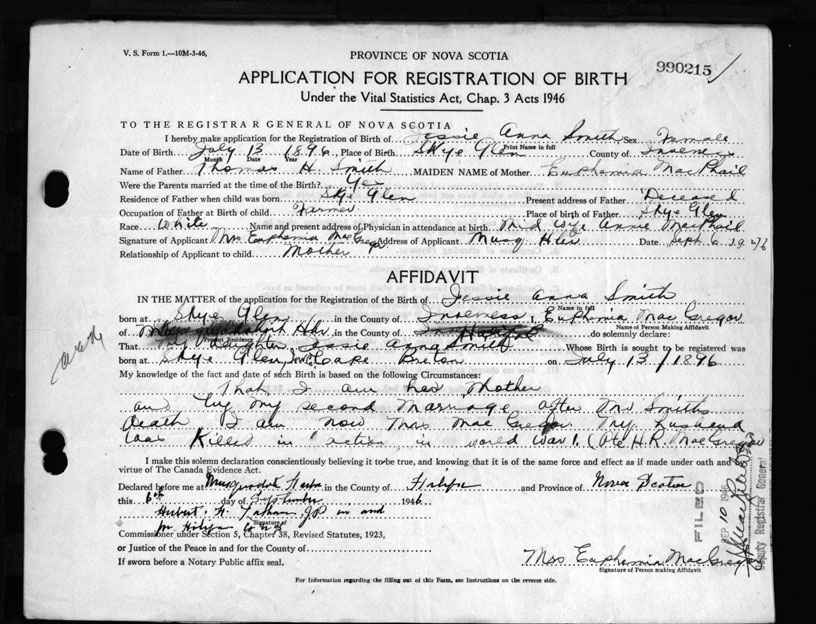 V. S. Form 1.—10M-3-46.
PROVINCE OF NOVA SCOTIA
990215
APPLICATION FOR REGISTRATION OF BIRTH
Under the Vital Statistics Act, Chap. 3 Acts 1946
TO THE REGISTRAR GENERAL OF NOVA SCOTIA
I hereby make application for the Registration of Birth of Jessie Anna Smith Sex Female
Print Name in full
Date of Birth July 13 1896 Place of Birth Skye Glen County of Inverness
Month Date Year
Name of Father Thomas H. Smith MAIDEN NAME of Mother Euphemia MacPhail
Were the Parents married at the time of the Birth? Yes
Residence of Father when child was born Skye Glen Present address of Father Deceased
Occupation of Father at Birth of child Farmer Place of birth of Father Skye Glen
Race White Name and present address of Physician in attendance at birth Mid Wife Annie MacPhail
Signature of Applicant Mrs Euphemia MacGregor Address of Applicant Musq Hbr Date Sept 6 1946
Relationship of Applicant to child Mother
AFFIDAVIT
IN THE MATTER of the application for the Registration of the Birth of Jessie Anna Smith
Name in full
born at Skye Glen in the County of Inverness I, Euphemia MacGregor
Name of Person Making Affidavit
of Musquodoboit Hbr in the County of Halifax do solemnly declare:
Present Residence
That my daughter Jessie Anna Smith Whose Birth is sought to be registered was
born at Skye Glen, Cape Breton on July 13 / 1896
My knowledge of the fact and date of such Birth is based on the following Circumstances:
That I am her Mother
and by my second Marriage after Mr Smiths
death I am now Mrs MacGregor My husband
was Killed in action in world War 1. (Pte H.R. MacGregor
I make this solemn declaration conscientiously believing it to be true, and knowing that it is of the same force and effect as if made under oath and by
virtue of The Canada Evidence Act.
Declared before me at Musquodoboit Harbor in the County of Halifax and Province of Nova Scotia
this 6th day of September 1946
Herbert JP in and
for Halifax Co N S
Signature of
Commissioner under Section 5, Chapter 38, Revised Statutes, 1923,
or Justice of the Peace in and for the County of
If sworn before a Notary Public affix seal.
Mrs Euphemia MacGregor
Signature of Person making Affidavit
FILED
SEP 10 1946
Deputy Registrar General
For Information regarding the filling out of this Form, see Instructions on the reverse side.